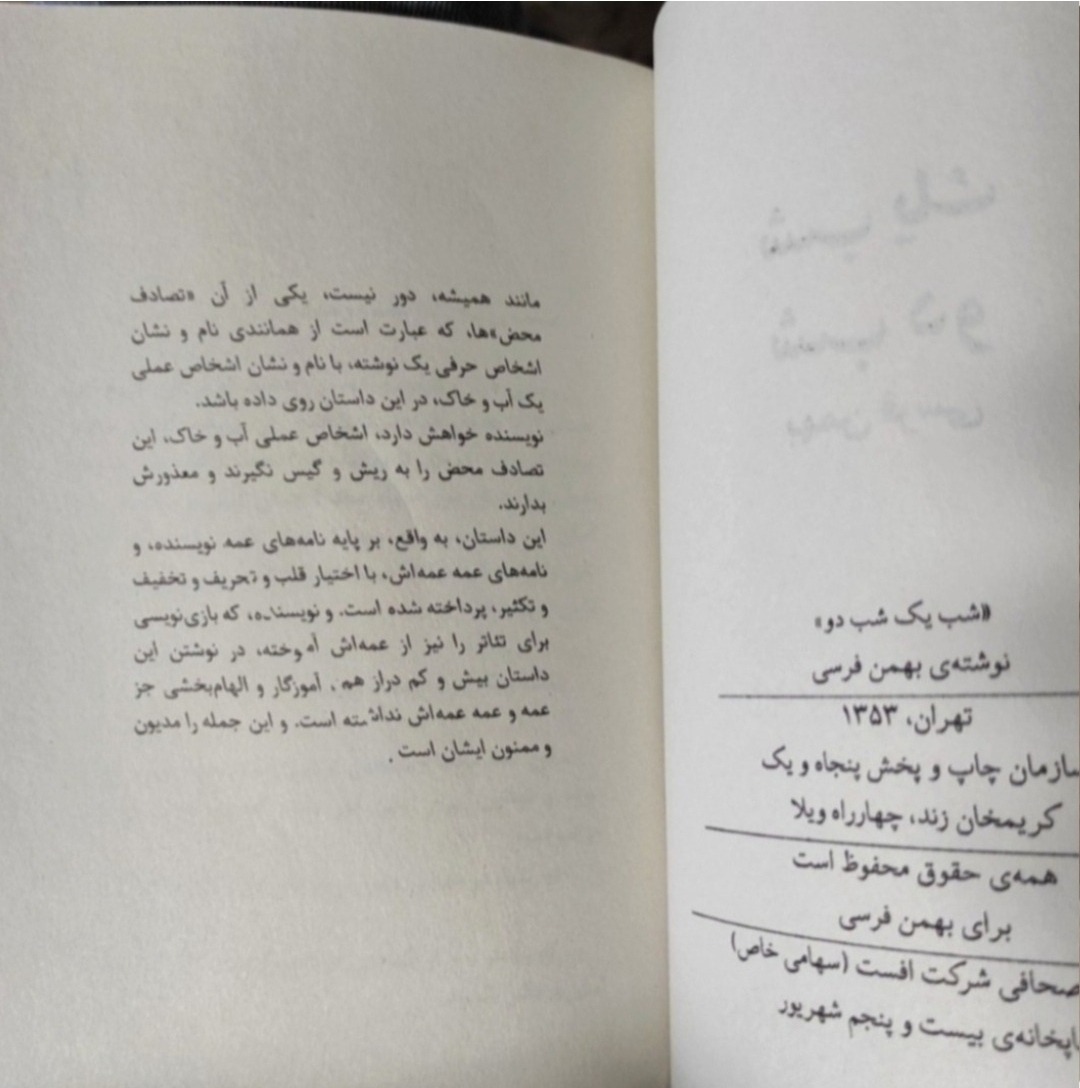 «شب یک شب دو»
نوشته‌ی بهمن فرسی
تهران، ۱۳۵۳
سازمان چاپ و پخش پنجاه و یک
کریمخان زند، چهارراه ویلا
همه‌ی حقوق محفوظ است
برای بهمن فرسی
صحافی شرکت افست (سهامی خاص)
چاپخانه‌ی بیست و پنجم شهریور
مانند همیشه، دور نیست، یکی از آن «تصادف
محض»ها، که عبارت است از همانندی نام و نشان
اشخاص حرفی یک نوشته، با نام و نشان اشخاص عملی
یک آب و خاک، در این داستان روی داده باشد.
نویسنده خواهش دارد، اشخاص عملی آب و خاک، این
تصادف محض را به ریش و گیس نگیرند و معذورش
بدارند.
این داستان، به واقع، بر پایه نامه‌های عمه نویسنده، و
نامه‌های عمه عمه‌اش، با اختیار قلب و تحریف و تخفیف
و تکثیر، پرداخته شده است. و نویسنده، که بازی‌نویسی
برای تئاتر را نیز از عمه‌اش آموخته، در نوشتن این
داستان بیش و کم دراز هم، آموزگار و الهام‌بخشی جز
عمه و عمه عمه‌اش نداشته است. و این جمله را مدیون
و ممنون ایشان است.